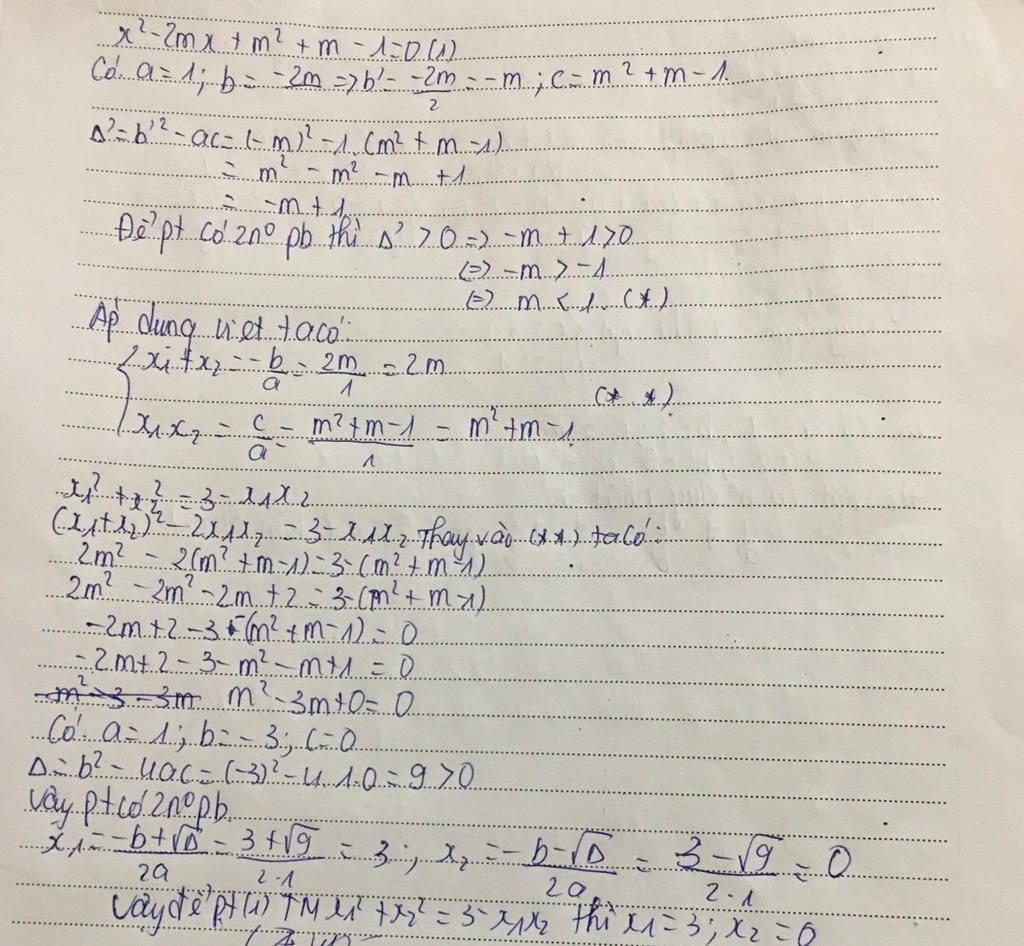 x² - 2mx + m² + m - 1 = 0 (1)
Có a = 1; b = -2m => b' = -2m/2 = -m; c = m² + m - 1.
Δ' = b'² - ac = (-m)² - 1.(m² + m - 1)
= m² - m² - m + 1
= -m + 1
Để pt có 2n⁰ pb thì Δ' > 0 => -m + 1 > 0
<=> -m > -1
<=> m < 1 (*)
Áp dụng viet ta có:
{ x₁ + x₂ = -b/a = 2m/1 = 2m
(* *)
x₁.x₂ = c/a = m² + m - 1/1 = m² + m - 1
x₁² + x₂² = 3 - x₁x₂
(x₁ + x₂)² - 2x₁x₂ = 3 - x₁x₂ Thay vào (**) ta có:
2m² - 2(m² + m - 1) = 3 - (m² + m - 1)
2m² - 2m² - 2m + 2 = 3 - (m² + m - 1)
-2m + 2 - 3 - (m² + m - 1) = 0
-2m + 2 - 3 - m² - m + 1 = 0
m² - 3 - 3m m² - 3m + 0 = 0
Có a = 1; b = -3; c = 0
Δ = b² - 4ac = (-3)² - 4.1.0 = 9 > 0
Vậy pt có 2n⁰ pb
x₁ = -b + √Δ/2a = 3 + √9/2.1 = 3; x₂ = -b - √Δ/2a = 3 - √9/2.1 = 0
Vậy để pt (1) TM x₁² + x₂² = 3 - x₁x₂ thì x₁ = 3; x₂ = 0